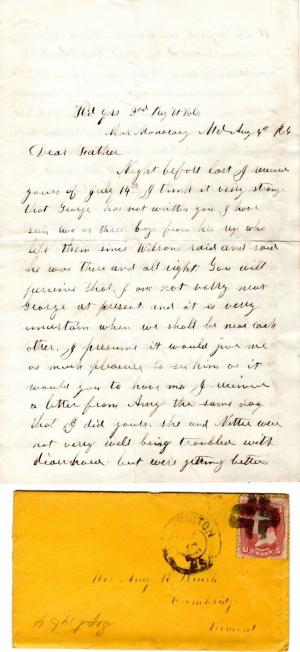 Hd qrs 2nd Reg Vt Vols
Near Monocacy Md Aug 4th /64
Dear Father
Night before last I received
yours of July 14th I think it very strange
that George has not written you I have
seen two or three boys from his reg who
left them since Wilsons raid and said
he was there and all right You will
perceive that I am not verry near
George at present and it is verry
uncertain when we shall be near each
other. I presume it would give me
as much pleasure to see him as it
would you to have me I receiver
a letter from Amy the same day
that I did yours. She and Nettie were
not verry well being troubled with
diarrhoea but were getting better
Mrs Amy
Cambridge
Vermont
Sept 1864